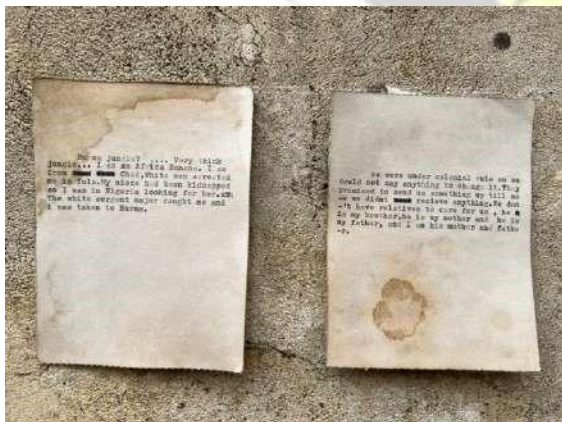 jungle? .... Very thick
jungle... I am an Africa Banana. I am
from Chad,White men arrested
me in Yola.My niece had been kidnapped
so I was in Nigeria looking for her.
The white sergent major caught me and
i was taken to Burma.
we were under colonial rule so we
could not say anything to change it.They
promised to send us something up till no
-w we didnt recieve anything.We don
-'t have relatives to care for us , he
is my brother,he is my mother and he is
my father, and I am his mother and fathe
-r.